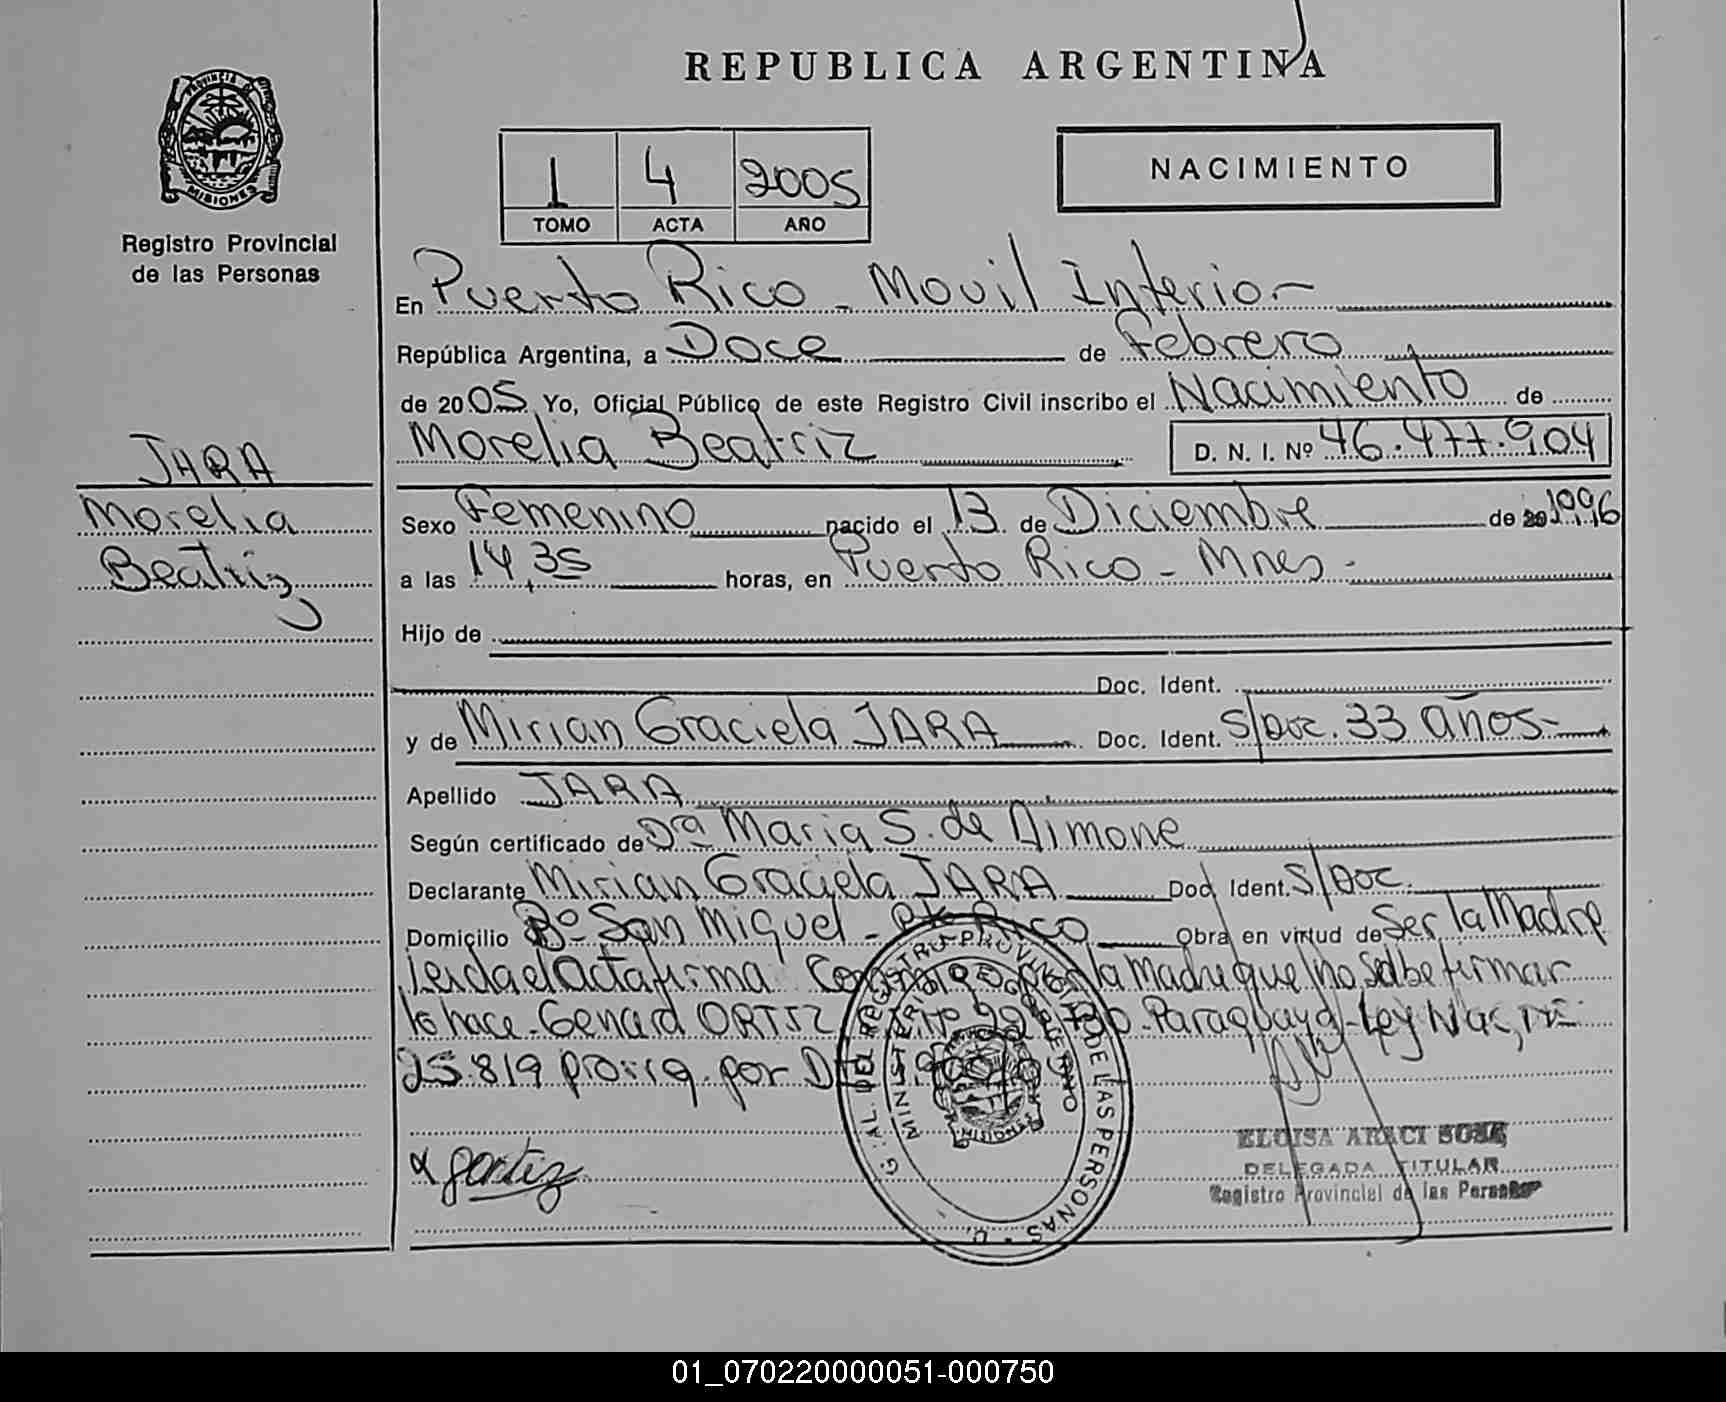 REPUBLICA ARGENTINA
PROVINCIA DE
MISIONES
Registro Provincial
de las Personas
1 4 2005
TOMO ACTA AÑO
NACIMIENTO
En Puerto Rico - Movil Interior
República Argentina, a Doce de Febrero
de 2005 Yo, Oficial Público de este Registro Civil inscribo el Nacimiento de
Morelia Beatriz D. N. I. Nº 46.477.904
JARA
Morelia
Beatriz
Sexo Femenino nacido el 13 de Diciembre de 1996
a las 14,35 horas, en Puerto Rico - Mnes.
Hijo de
Doc. Ident.
y de Mirian Graciela JARA Doc. Ident. S/Doc. 33 años-
Apellido JARA
Según certificado de Dra Maria S. de Aimone
Declarante Mirian Graciela JARA Doc. Ident. S/Doc.
Domicilio Bº San Miguel - Rico Obra en virtud de Ser la Madre
leida el Acta firma la Madre que no Sabe firmar
lo hace Genard ORTIZ Paraguayo - Ley Nac. Nº
25.819 por
REGISTRO PROVINCIAL DE LAS PERSONAS
MINISTERIO DE GOBIERNO
MISIONES
ELOISA ARACI SOSA
DELEGADA TITULAR
Registro Provincial de las Personas
01_070220000051-000750